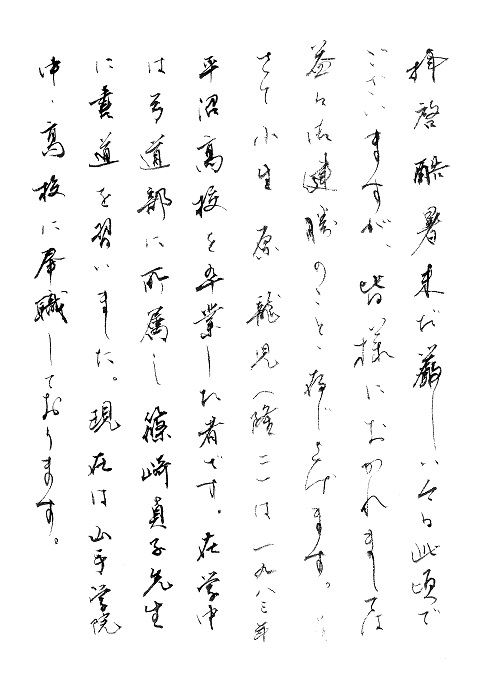 拝啓酷暑未だ厳しい今日此頃で
ございますが、皆様におかれましては
益々御健勝のこと、存じ上げます。
さて小生 原 龍児(隆二)は一九八三年
平沼高校を卒業した者です。在学中
は弓道部に所属し篠崎貞子先生
に書道を習いました。現在は山手学院
中・高校に奉職しております。